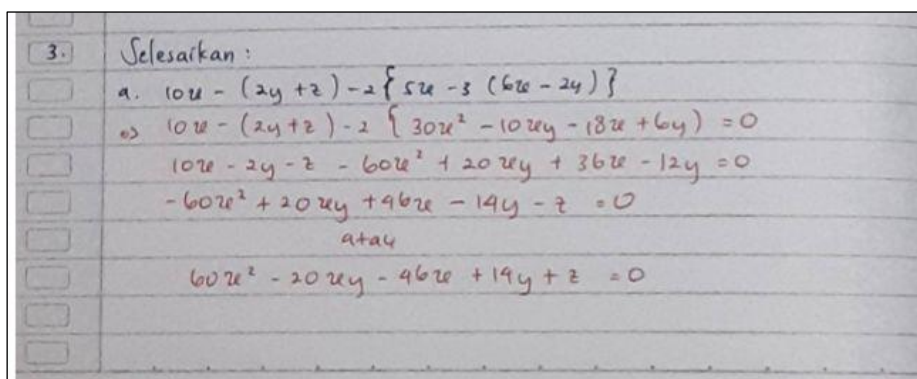 3. Selesaikan :
a. 10x - (2y + z) - 2 { 5x - 3 (6x - 2y) }
=> 10x - (2y + z) - 2 { 30x² - 10xy - 18x + 6y ) = 0
10x - 2y - z - 60x² + 20xy + 36x - 12y = 0
- 60x² + 20xy + 46x - 14y - z = 0
atau
60x² - 20xy - 46x + 14y + z = 0